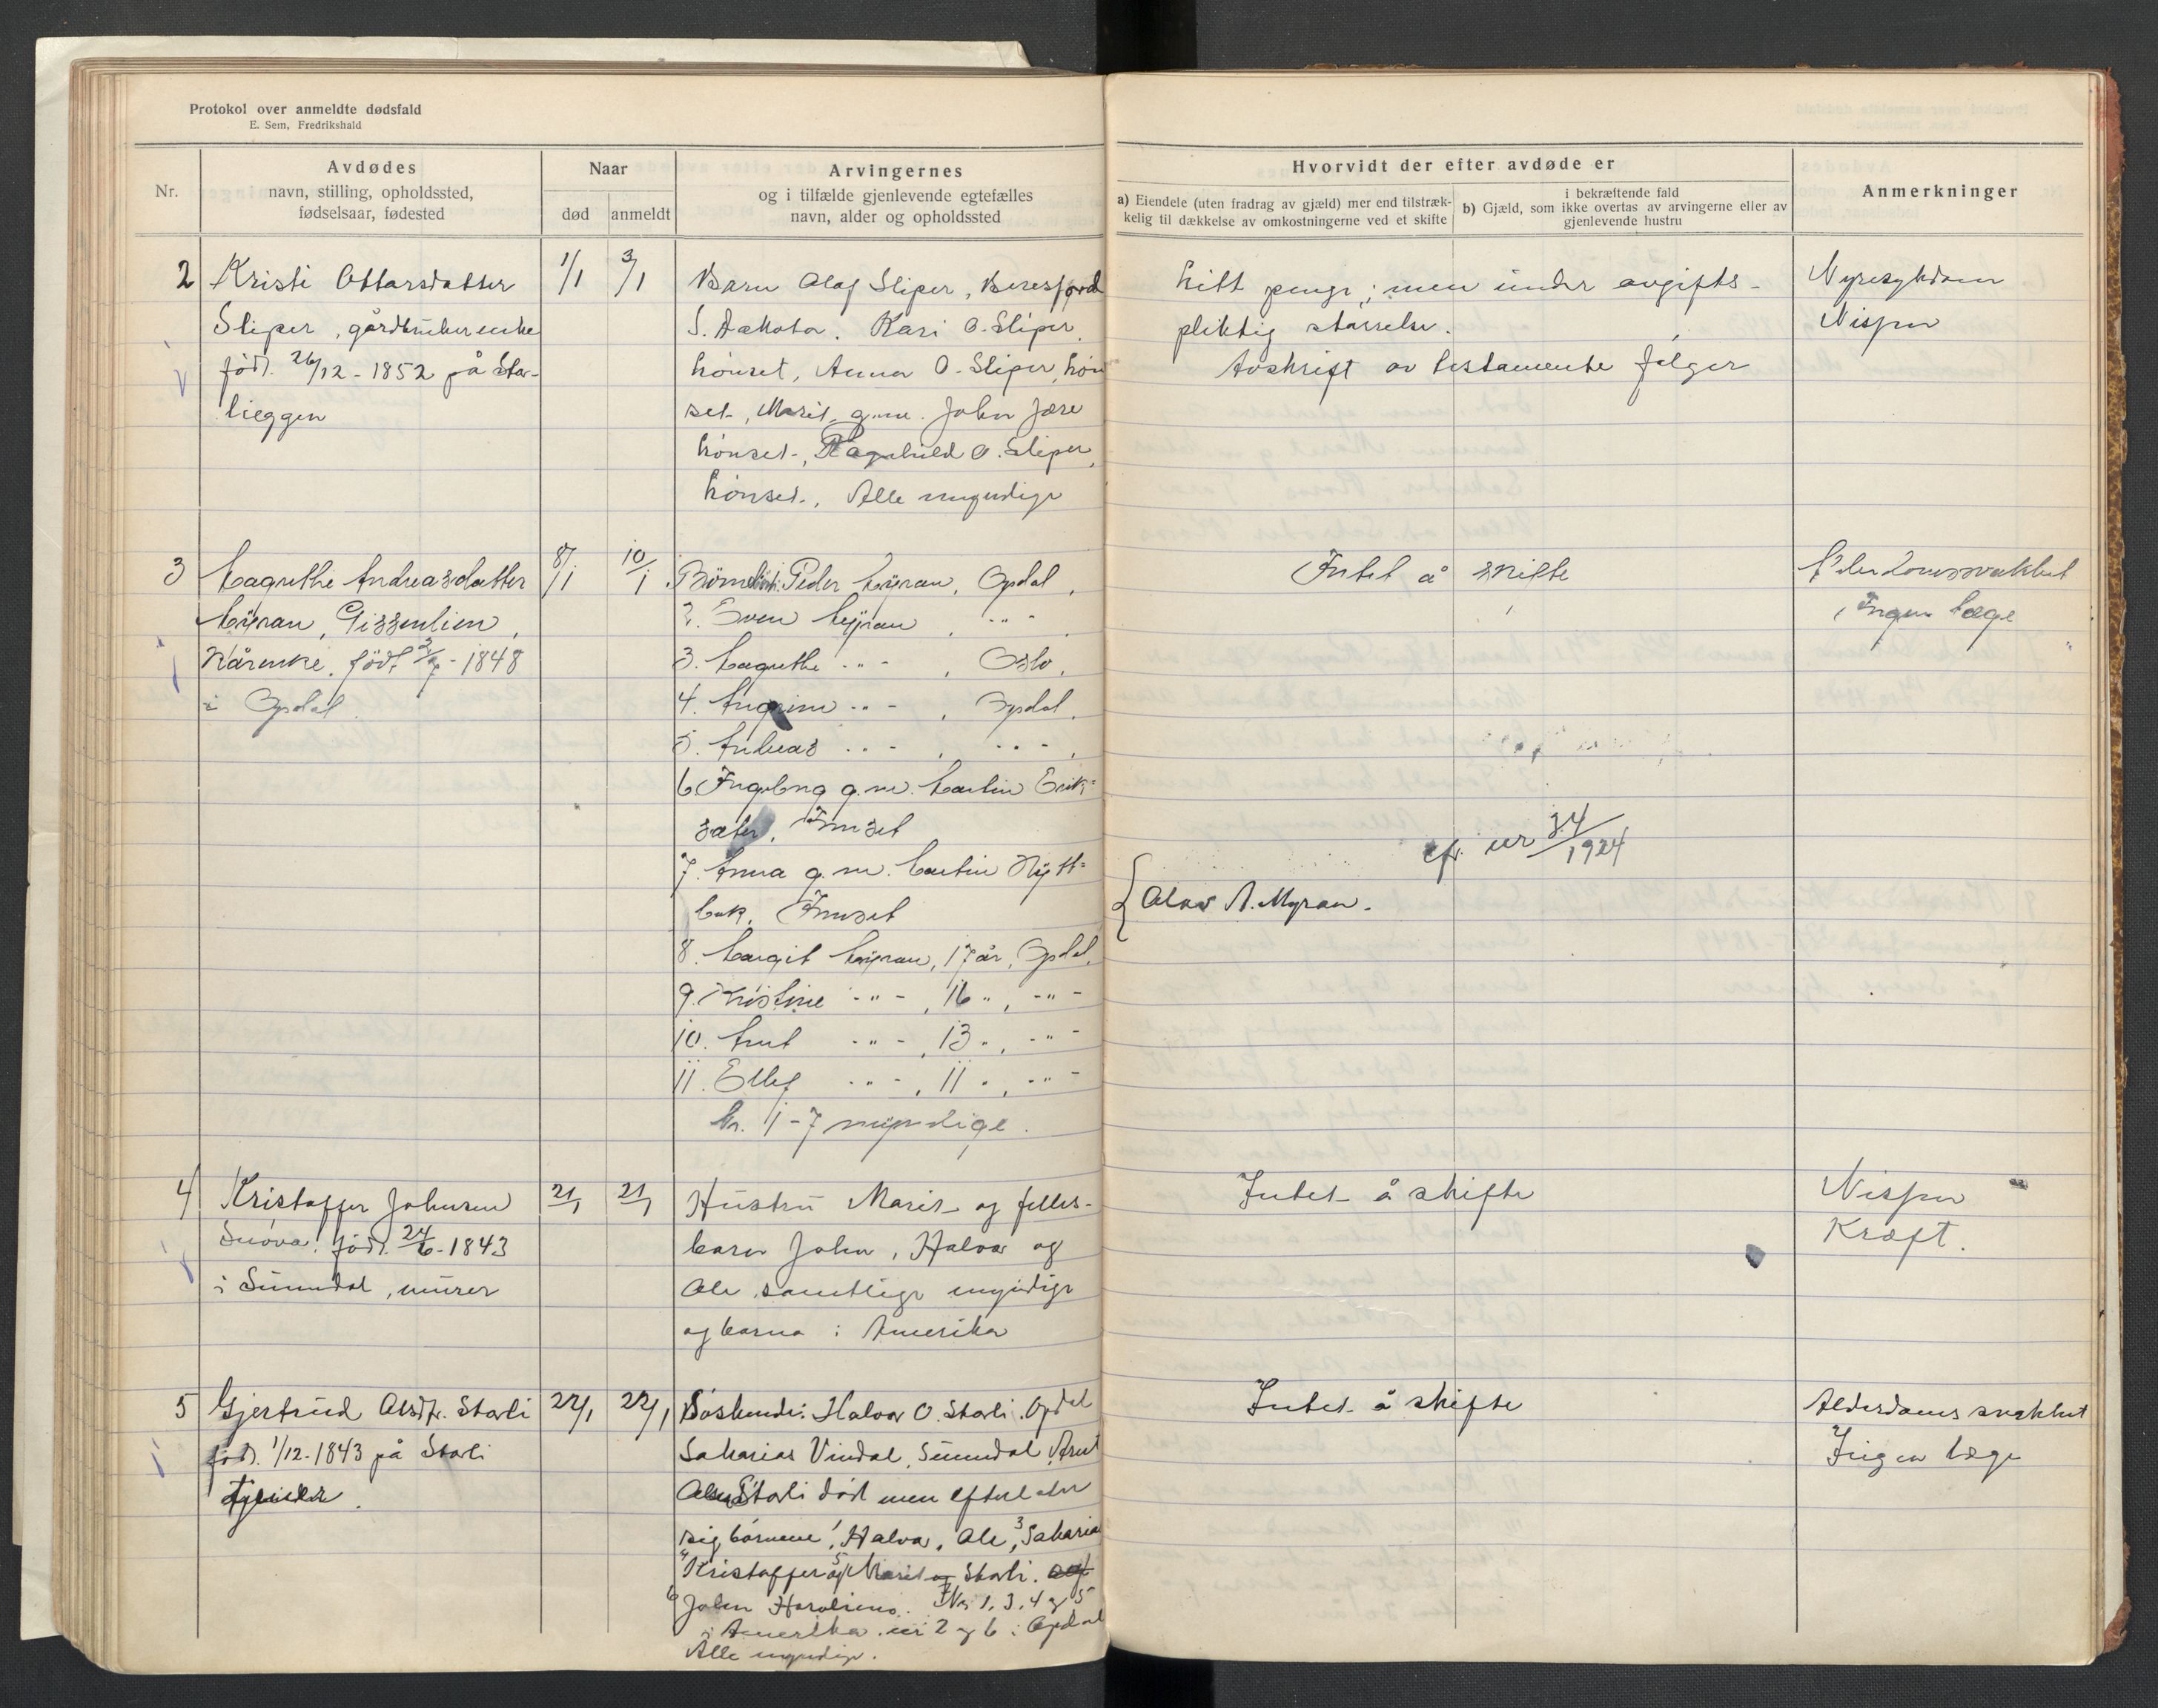 Protokol over anmeldte dødsfald
E. Sem, Fredrikshald
Nr.
Avdødes
navn, stilling, opholdssted,
fødselsaar, fødested
Naar
død
anmeldt
Arvingernes
og i tilfælde gjenlevende egtefælles
navn, alder og opholdssted
Hvorvidt der efter avdøde er
a) Eiendele (uten fradrag av gjæld) mer end tilstræk-
kelig til dækkelse av omkostningerne ved et skifte
i bekræftende fald
b) Gjæld, som ikke overtas av arvingerne eller av
gjenlevende hustru
Anmerkninger
2 Kristi Ottarsdatter
Sliper, gårdbrukerenke
född. 26/12 - 1852 på Stor-
lieggen
1/1
3/1
Barn Olaf Sliper, Beresford
S. Dakota. Kari O. Sliper
Lönset, Anna O. Sliper, Lön
set, Marit g.m. John Jære
Lönset, Ragnhild O. Sliper,
Lönset, Alle myndige
Litt penge; men under avgifts-
pliktig størrelse.
Avskrift av testamente følger
Nyresykdom
Nisfen
3 Magrethe Andreasdatter
Myran, Gissenlien,
Kårenke, född 2/7 - 1848
i Opdal
8/1
10/1
Peder Myran, Opdal,
2. Sven Myran, -"-
3. Magrethe -"-, Oslo,
4. -"-, Opdal,
5. Andreas -"-, -"-,
6. Ingebrg g.m. Martin Erik=
sæter, Innset
7. Anna g.m. Martin Hytt=
bak, Innset
8. Margit Myran, 17 år, Opdal,
9. Kristine -"-, 16 ", -"-
10. Arnt -"-, 13 ", -"-
11. Ellef -"-, 11 ", -"-
Nr. 1-7 myndige.
Intet å skifte
cfr. nr 34/1924
{ Olav A. Myran.
Alderdomssvakhet
, Ingen læge
4 Kristoffer Johnsen
Snöva. född. 24/6 - 1843
i Sunndal, murer
21/1
21/1
Hustru Marit og felles-
barn John, Halvor og
Ole, samtlige myndige
og barna i Amerika
Intet å skifte
Nisfen
Kræft.
5 Gjertrud Olsdtr. Storli
född. 1/12 - 1843 på Storli
22/1
22/1
Söskende: Halvor O. Storli. Opdal
Sakarias Vindal, Sunndal, Arnt
Olsen Storli död men efterlater
sig börnene 1 Halvor, Ole, 3 Sakaria
4 Kristoffer og 5 Marit og Storli. og
6 John Haralsmo. Nr 1, 3, 4 og 5
i Amerika. nr 2 og 6 i Opdal
Alle myndige.
Intet å skifte
Alderdoms svakhet
Ingen læge